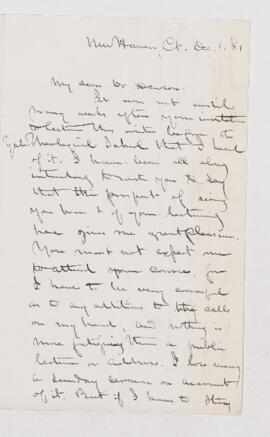 New Haven, Ct. Dec. 1. 81
My dear Dr Dawson.
It was not until
many weeks after your invitation
to lecture this winter before the
Yale Theological School that I heard
of it. I have been all along
intending to write you to say
that the prospect of seeing
you here & of your lecturing
here gives me great pleasure.
You must not expect me
to attend your course, for
I have to be very careful
as to any additions to the calls
on my heart, and nothing is
more fatiguing than a public
lecture or address. I lose many
a Sunday sermon on account
of it. But if I have to stay